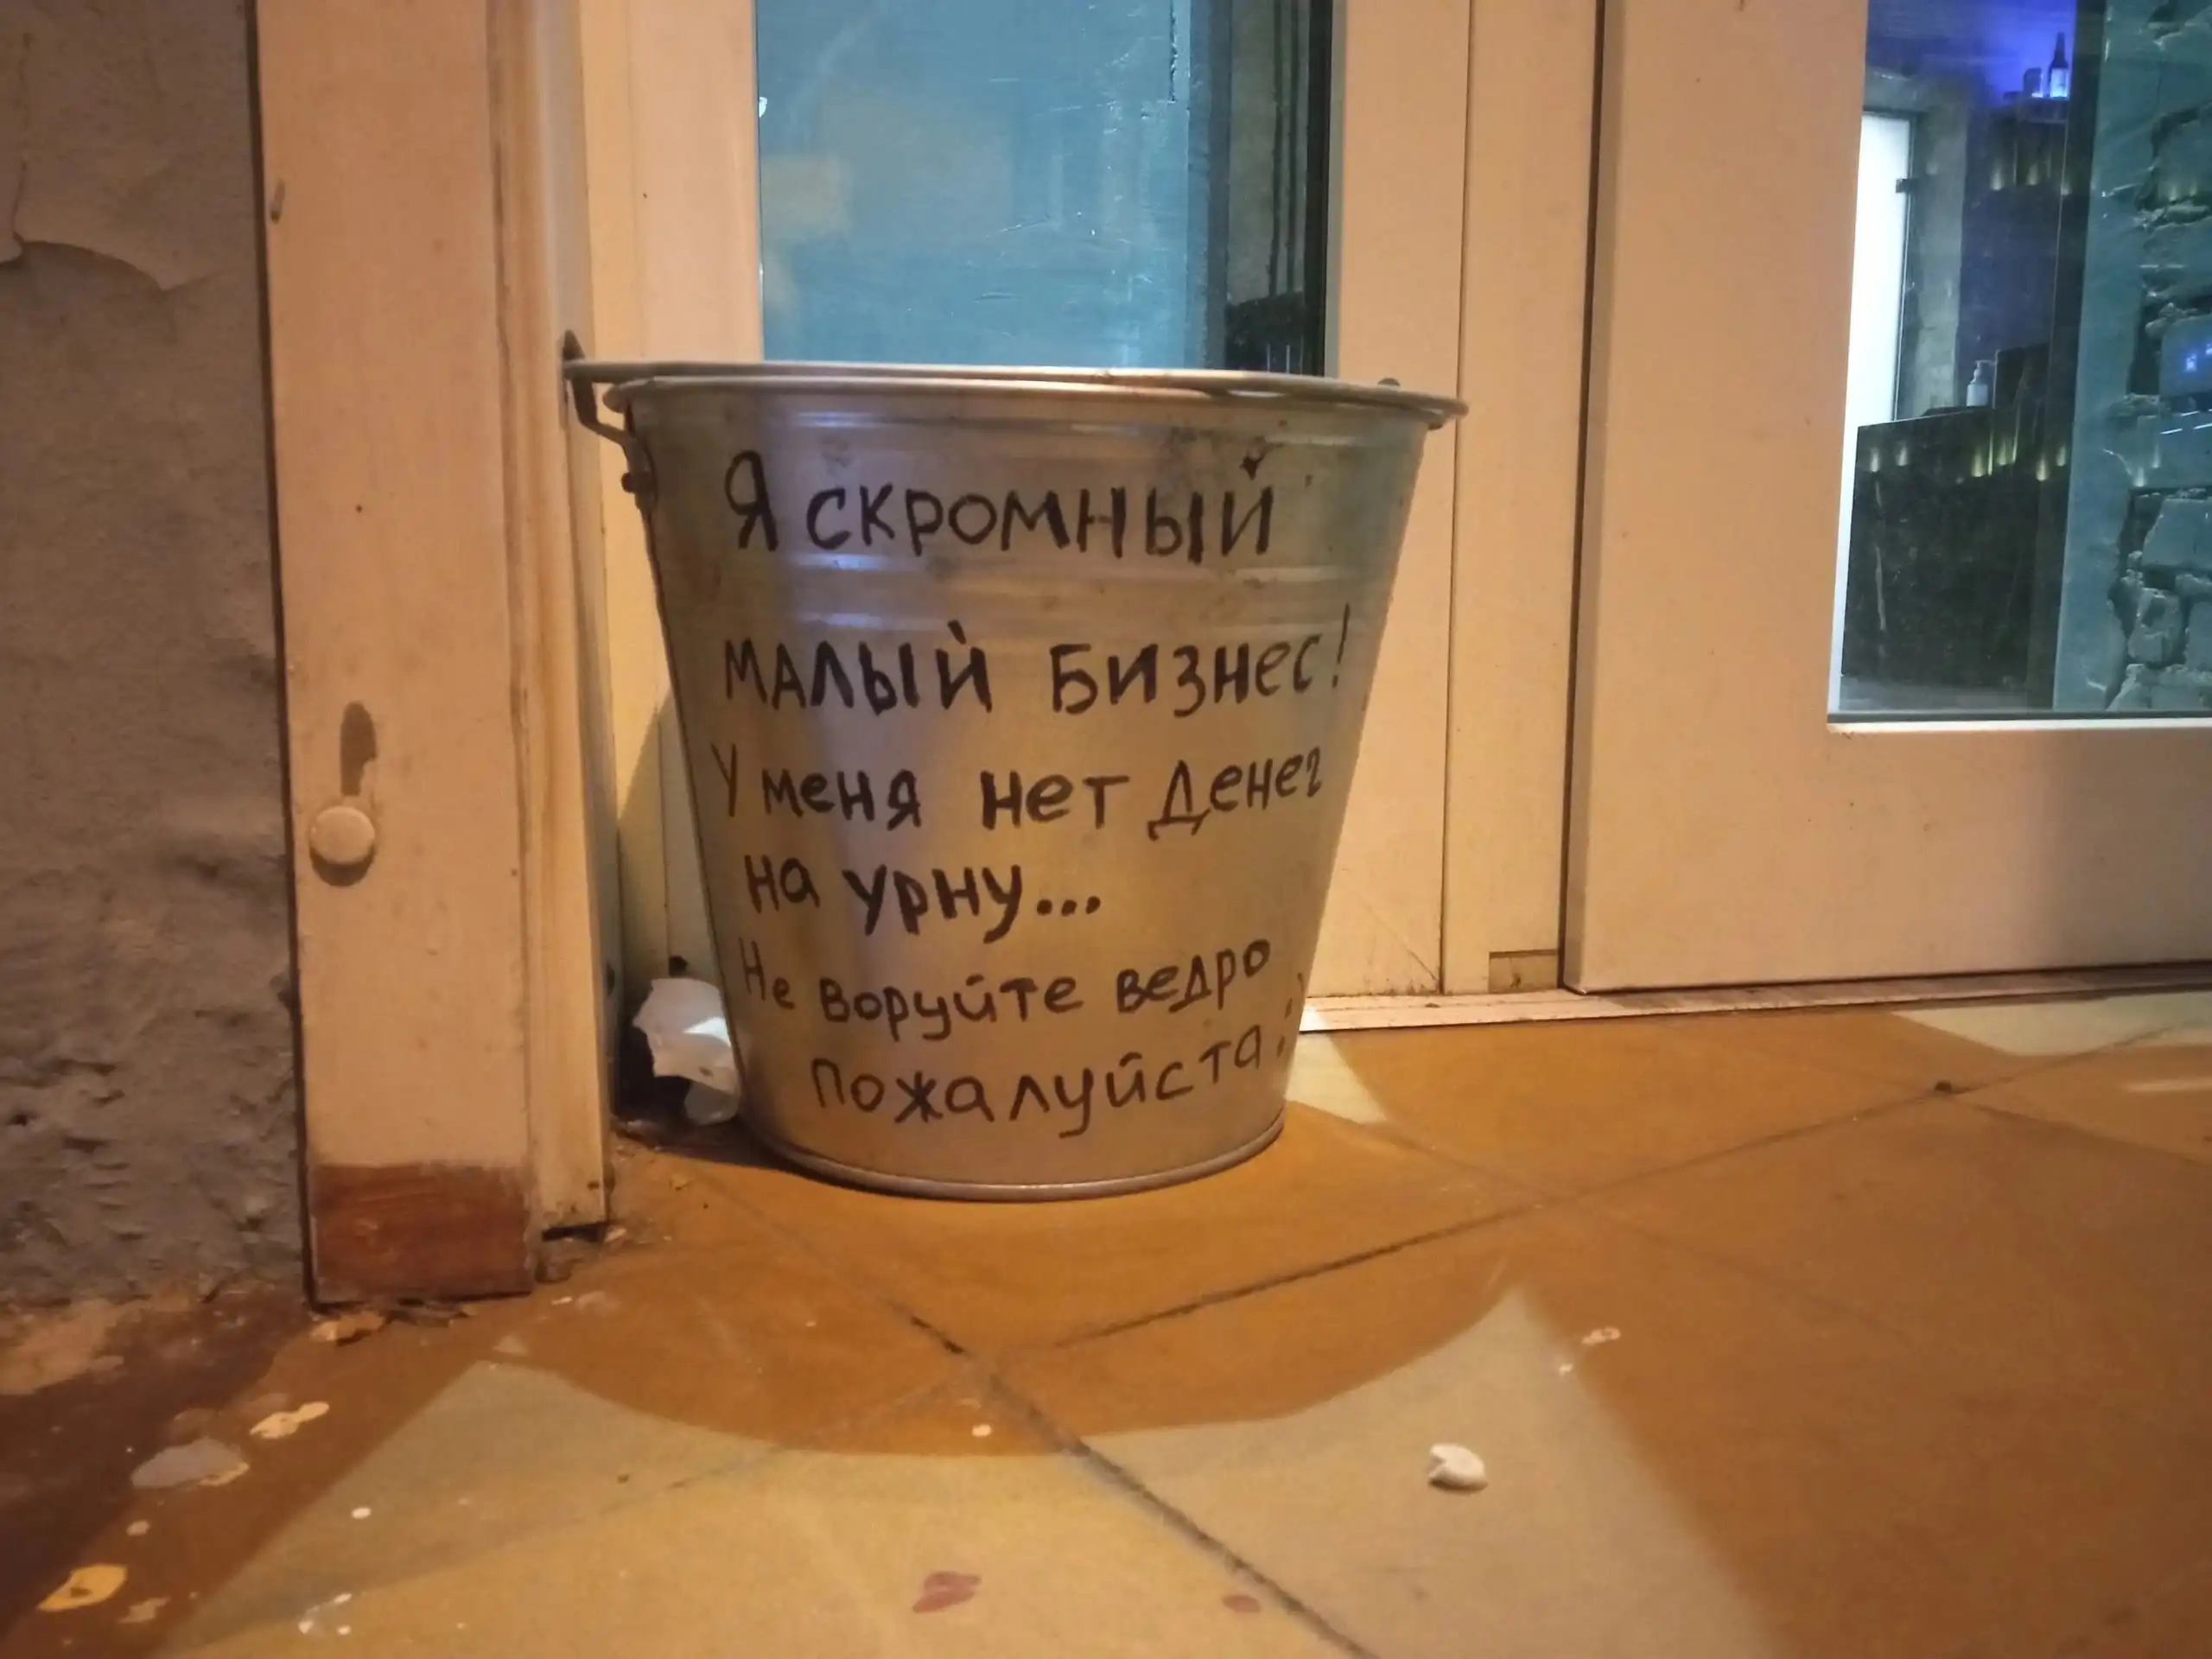 Я скромный
малый Бизнес!
У меня нет денег
на урну...
Не воруйте ведро
пожалуйста.